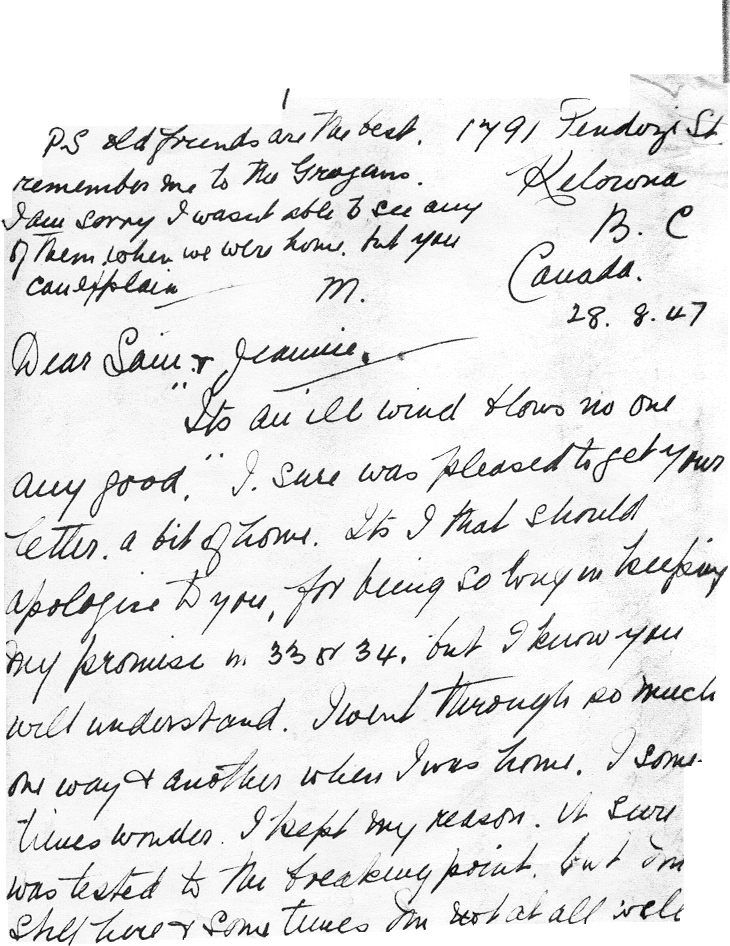 PS old friends are the best.
remember me to the Grogans.
I am sorry I wasnt able to see any
of them, when we were home. but you
can explain
M.
1791 Pendozi St
Kelowna
B. C
Canada.
28. 8. 47
Dear Sam & Jeannie.
"Its an ill wind blows no one
any good." I sure was pleased to get your
letter. a bit of home. Its I that should
apologise to you, for being so long in keeping
my promise in 33 or 34. but I know you
will understand. I went through so much
one way & another when I was home. I some-
times wonder. I kept my reason. it sure
was tested to the breaking point. but Im
still here & sometimes Im not at all well